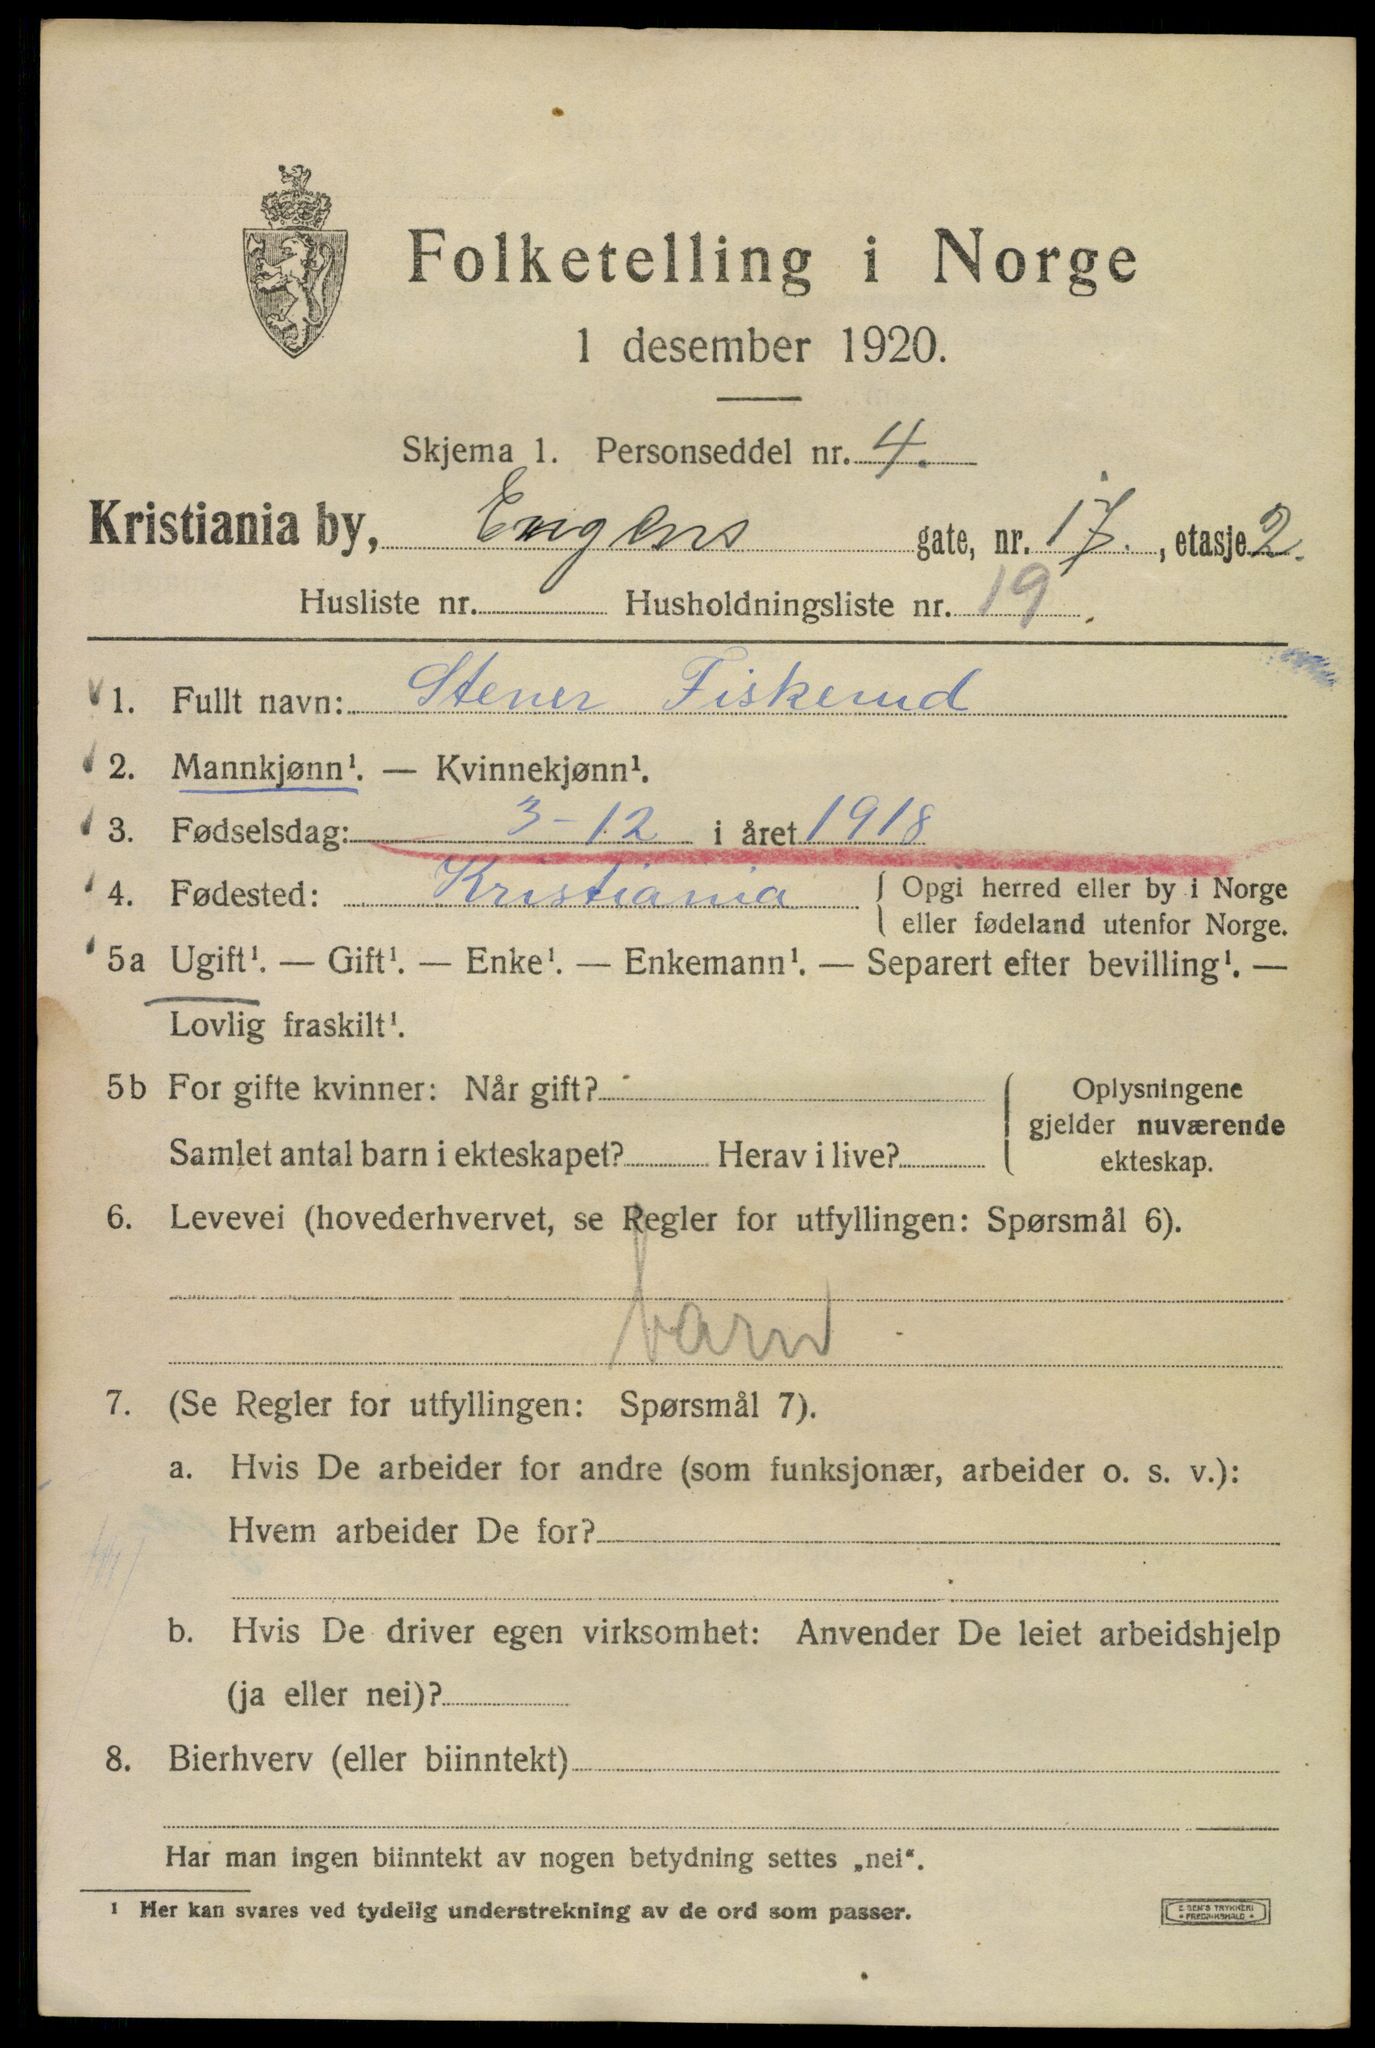 Folketelling i Norge
1 desember 1920.
Skjema 1. Personseddel nr. 4.
Kristiania by, Engens gate, nr. 17., etasje 2.
Husliste nr. Husholdningsliste nr. 19.
1. Fullt navn: Stener Fiskerud
2. Mannkjønn¹. — Kvinnekjønn¹.
3. Fødselsdag: 3-12 i året 1918
4. Fødested: Kristiania { Opgi herred eller by i Norge
eller fødeland utenfor Norge.
5a Ugift¹. — Gift¹. — Enke¹. — Enkemann¹. — Separert efter bevilling¹. —
Lovlig fraskilt¹.
5b For gifte kvinner: Når gift? { Oplysningene
gjelder nuværende
Samlet antal barn i ekteskapet? Herav i live? ekteskap.
6. Levevei (hovederhvervet, se Regler for utfyllingen: Spørsmål 6).
barn
7. (Se Regler for utfyllingen: Spørsmål 7).
a. Hvis De arbeider for andre (som funksjonær, arbeider o. s. v.):
Hvem arbeider De for?
b. Hvis De driver egen virksomhet: Anvender De leiet arbeidshjelp
(ja eller nei)?
8. Bierhverv (eller biinntekt)
Har man ingen biinntekt av nogen betydning settes „nei“.
¹ Her kan svares ved tydelig understrekning av de ord som passer.
TRYKKERI
FREDRIKSHALD